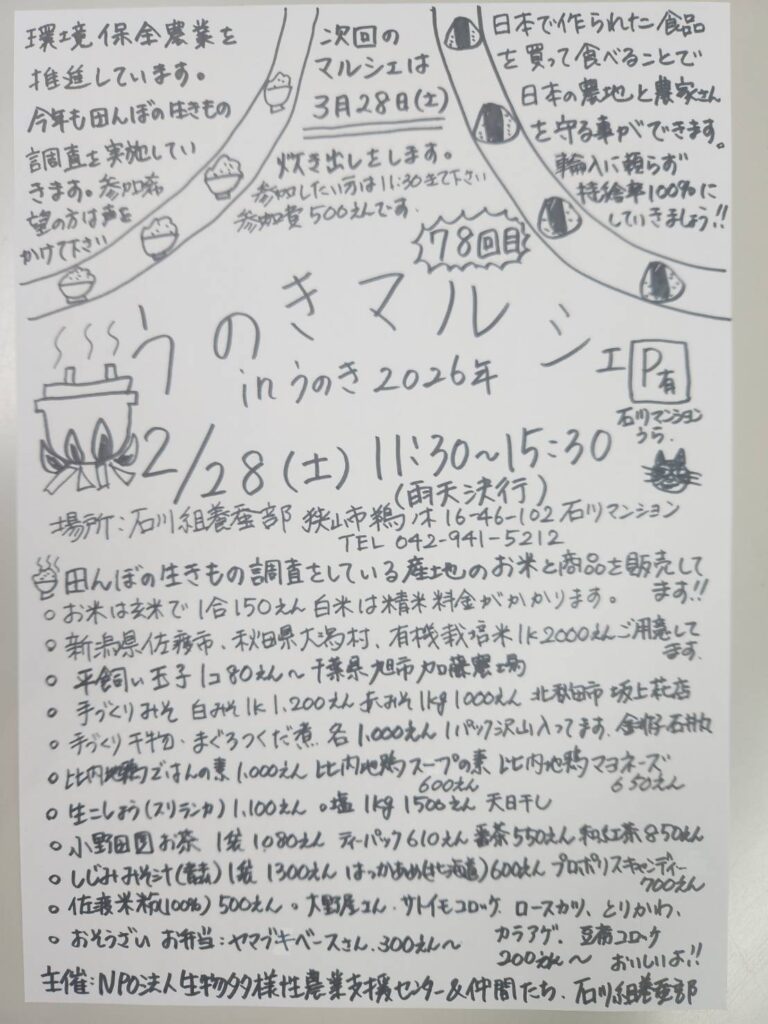 環境保全農業を
推進しています。
今年も田んぼの生きもの
調査を実施してい
きます。参加希
望の方は声を
かけて下さい
次回の
マルシェは
3月28日(土)
炊き出しをします。
参加したい方は11:30まで下さい
参加費500えんです。
日本で作られた食品
を買って食べることで
日本の農地と農家さん
を守る事ができます。
輸入に頼らず
持給率100%に
していきましょう!!
78回目
うのきマルシェ
inうのき2026年
P有
石川マンション
うら.
2/28(土) 11:30~15:30
(雨天決行)
場所:石川組養蚕部 狭山市鵜ノ木16-46-102石川マンション
TEL 042-941-5212
田んぼの生きもの調査をしている産地のお米と商品を販売して
ます!!
○お米は玄米で1合150えん 白米は精米料金がかかります。
○新潟県佐渡市、秋田県大潟村、有機栽培米1k2000えんご用意して
ます.
○平飼い玉子 1コ80えん~千葉県旭市加藤農場
○手づくりみそ 白みそ1k1,200えん 赤みそ1kg1000えん 北秋田市 坂上花店
○手づくり干物・まぐろつくだ煮 各1,000えん 1パック沢山入ってます.
○比内地鶏ごはんの素1,000えん 比内地鶏スープの素 比内地鶏マヨネーズ
600えん 650えん
○生こしょう(スリランカ)1,100えん 。塩 1kg 1500えん 天日干し
○小野田園お茶 1袋 1,080えん ティーパック610えん 番茶550えん 和紅茶850えん
○しじみみそ汁 1袋 1300えん はっかあめ(北海道)600えん プロポリスキャンディー
700えん
○佐渡米粉(100%)500えん 。大野屋さん.サトイモコロッケ ロースカツ、とりかわ、
○おそうざい お弁当:ヤマブキベースさん.300えん~ カラアゲ、豆腐コロッケ
200えん~ おいしいよ!!
主催:NPO法人生物多様性農業支援センター&仲間たち、石川組養蚕部